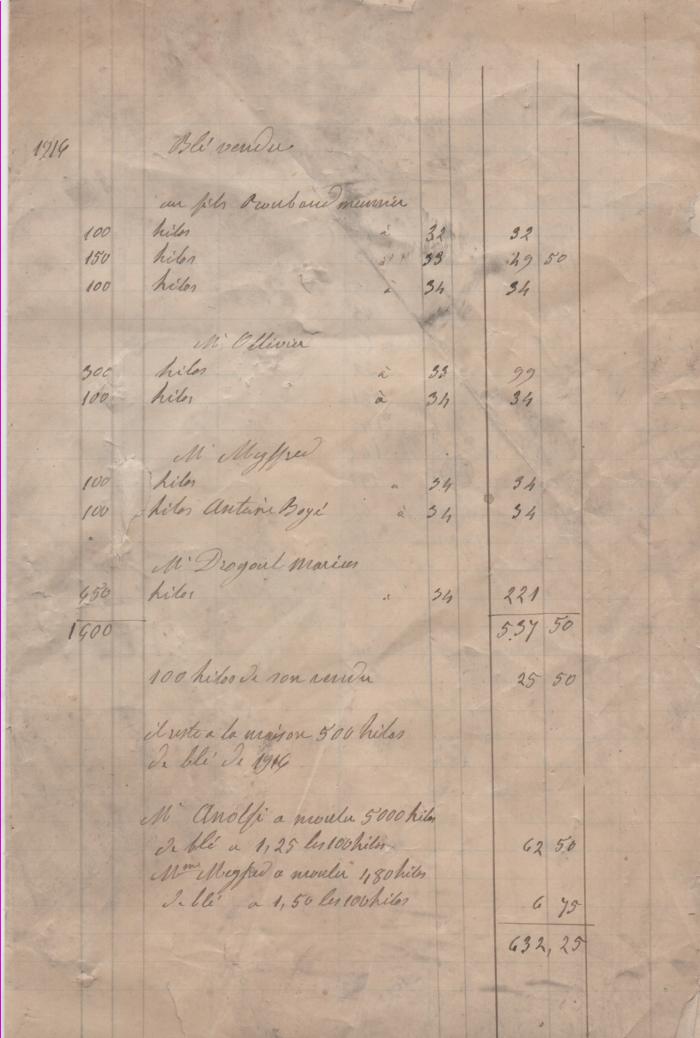 1916 Blé vendu
au fils Roubaud meunier
100 kilos à 32 32
150 kilos à 33 49 50
100 kilos à 34 34
Mr Ollivier
300 kilos à 33 99
100 kilos à 34 34
Mr Meyffred
100 kilos à 34 34
100 kilos Antoine Boyé à 34 34
Mr Drogoul Marius
650 kilos à 34 221
1600 537 50
100 kilos de son vendu 25 50
il reste a la maison 500 kilos
de blé de 1916
Mr Anolfi a moulu 5000 kilos
de blé a 1,25 les 100 kilos 62 50
Mme Meyffred a moulu 480 kilos
de blé a 1,50 les 100 kilos 6 75
632,25